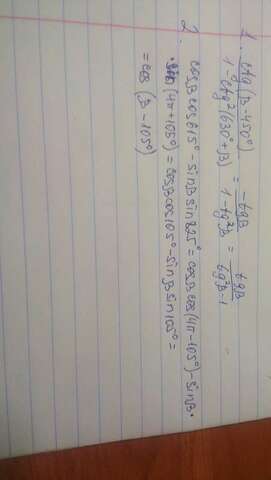 1. ctg(β-450°) / 1-ctg²(630°+β) = -tgβ / 1-tg²β = tgβ / tg²β-1
2. cosβcos615° - sinβ sin825° = cosβcos(4π-105°) - sinβ·
· sin(4π+105°) = cosβcos105° - sinβ sin105° =
= cos(β-105°)